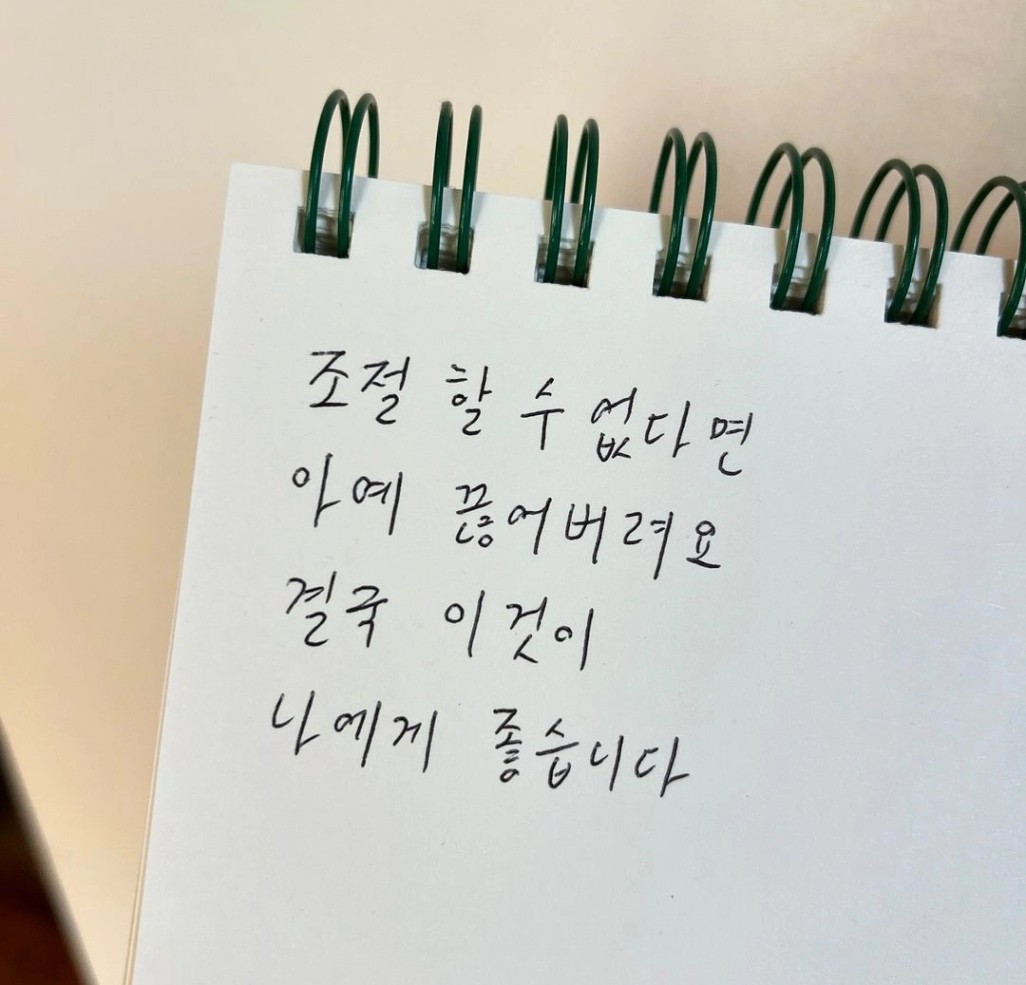 조절 할 수 없다면
아예 끊어버려요
결국 이것이
나에게 좋습니다